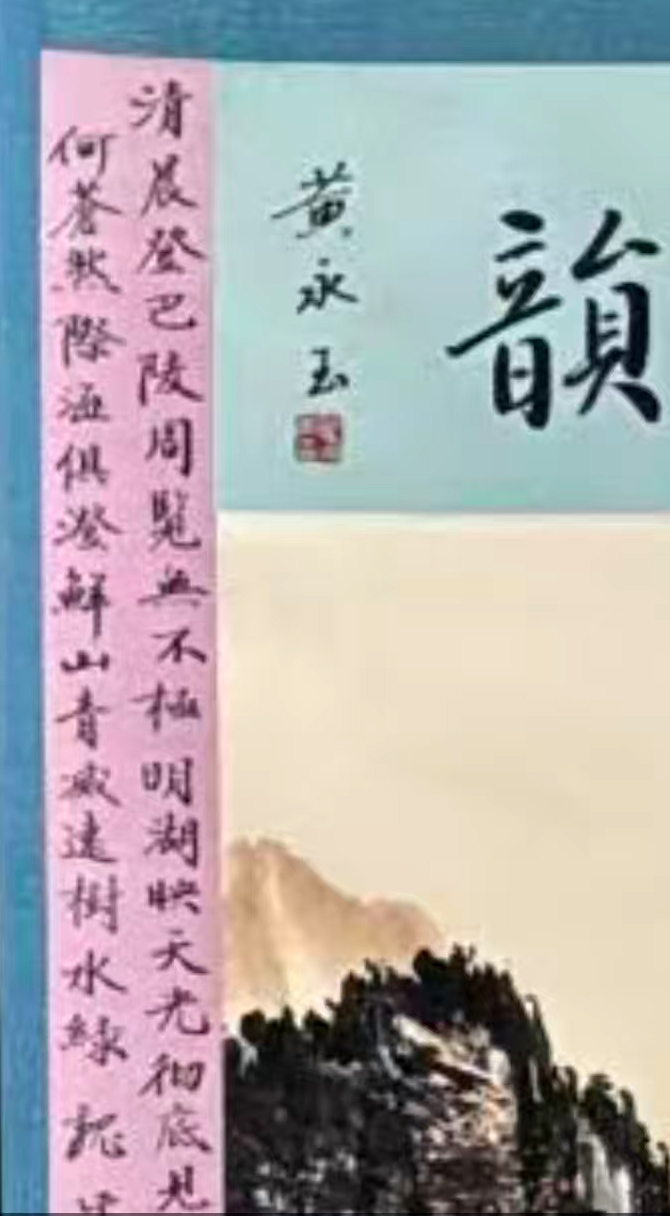 韻
黃永玉
清晨登巴陵周覽無不極明湖映天光徹底見
何蒼然際海俱澄鮮山青滅遠樹水綠